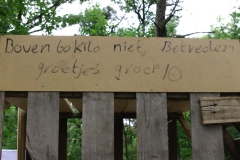 Boven 60 kilo niet, Betreden
groetjes groep 10